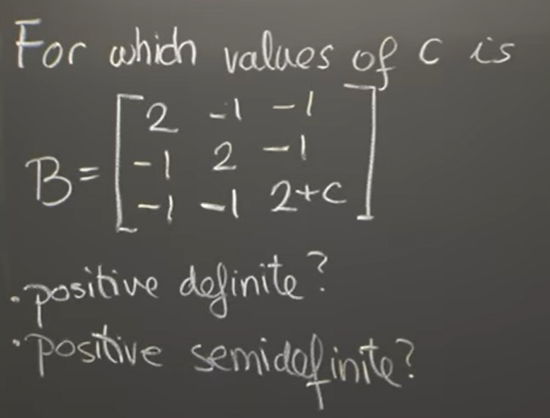 For which values of c is
B = [ 2 -1 -1
-1 2 -1
-1 -1 2+c ]
• positive definite?
• positive semidefinite?